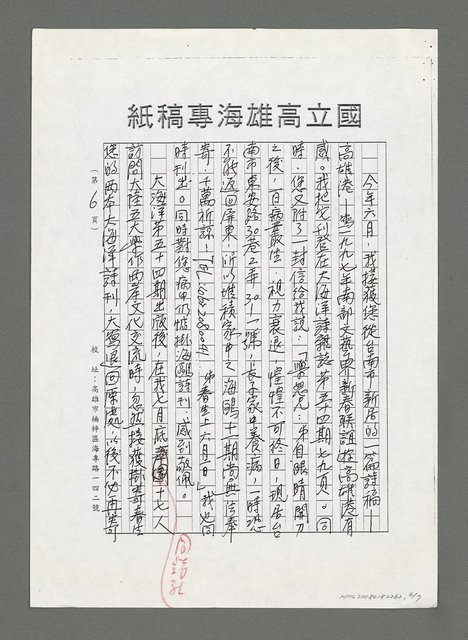 國立高雄海專稿紙
今年六月,我接獲您從台南市新居的一篇詩稿——
高雄港——寫一九九七年南部文藝界新春聯誼遊高雄港有
感。我把它刊登在大海洋詩雜誌第五十四期七九頁。同
時,您又附了一封信給我說:「樂思兄:弟自眼睛開刀
之後,百病叢生,視力衰退,惶惶不可終日,現居台
南市東安路30巷2弄30-1號,長子家中養病,一時恐
不能返回屏東,所以堆積家中之海鷗十一期尚無法奉
寄,千萬祈諒!Tel (06)2280041 弟春生上六月一日」我也同
時刊出。同時對您病中仍惦掛海鷗詩刊,感到敬佩。
大海洋第五十四期出版後,在我七月底 十七人
訪問大陸五大 作兩岸文化交流時,忽然接獲 寄春生
您的兩右大海洋詩刊,大
退回陳處,以後不必再寄
(第6頁)
校址:高雄市楠梓區海專路一四二號
NMTL20080182262, 6/7